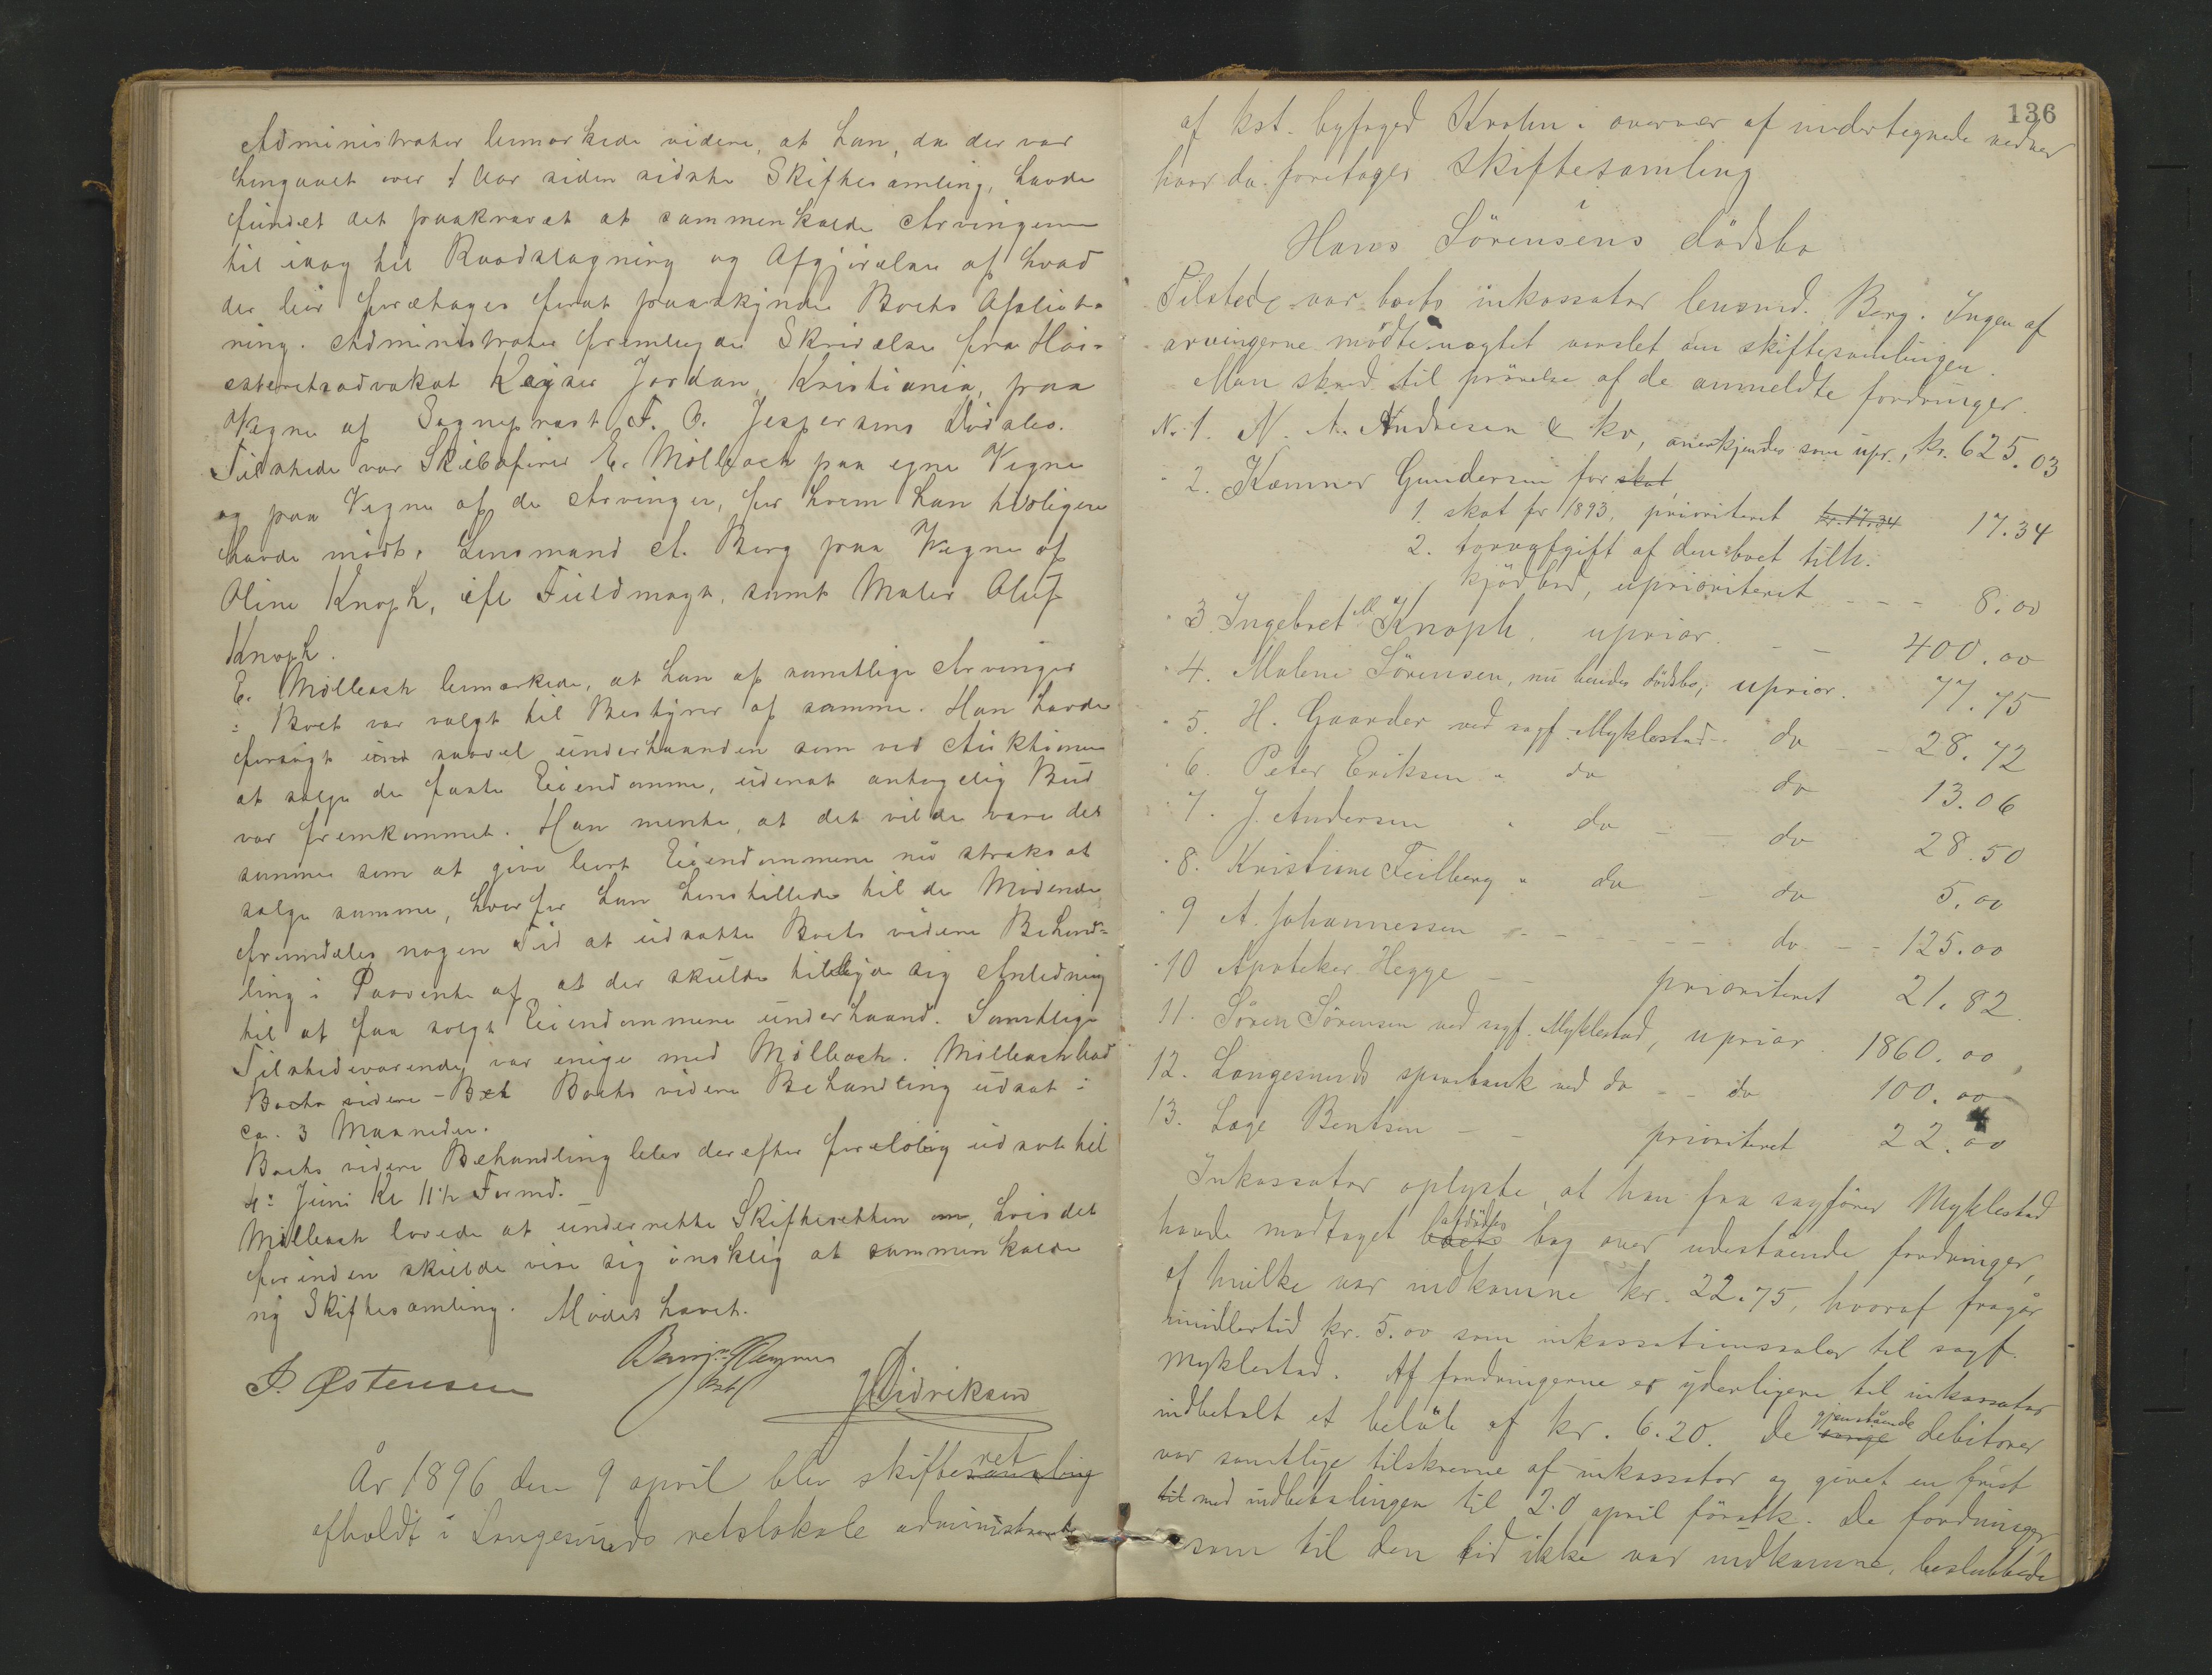 Administrator bemærkede videre, at han, da der var
hengaaet over 1 Aar siden sidste Skiftesamling, havde
fundet det paakrævet at sammenkalde Arvingerne
til idag til Raadslagning og Afgjørelse af hvad
der bør foretages forat paaskynde Boets Afslut-
ning. Administrator fremlagde Skrivelse fra Høi-
esteretsadvokat Keyser Jordan, Kristiania, paa
Vegne af Sogneprest F. C. Jespersens Dødsbo.
Tilstede var Skibsfører E. Møllbach paa egne Vegne
og paa Vegne af de Arvinger, for hvem han tidligere
havde mødt, Lensmand A. Berg paa Vegne af
Oline Knoph, ifl Fuldmagt, samt Maler Oluf
Knoph.
E. Møllbach bemærkede, at han af samtlige Arvinger
i Boet var valgt til Bestyrer af samme. Han havde
forsøgt saavel underhaanden som ved Auktioner
at sælge de faste Eiendomme, udenat antagelig Bud
var fremkommet. Han mente, at det vilde være det
samme som at give bort Eiendommene nu straks at
sælge samme, hvorfor han henstillede til de Mødende
fremdeles nogen Tid at udsætte Boets videre Behand-
ling i Paavente af at der skulde tilbyde sig Anledning
til at faa solgt Eiendommene underhaand. Samtlige
Tilstedeværende var enige med Møllbach. Møllbach bad
Boets videre Beh Boets videre Behandling udsat i
ca. 3 Maaneder.
Boets videre Behandling blev derefter foreløbig udsat til
4de Juni Kl 11 1/2 Formd.
Møllbach lovede at underrette Skifteretten om, hvis det
forinden skulde vise sig ønsklig at sammenkalde
ny Skiftesamling. Mødet hævet.
P. Østensen
J Didriksen
År 1896 den 9 april blev skiftesamling ret
afholdt i Langesunds retslokale administreret
136
af kst. byfoged Krohn i overvær af undertegnede vidner
hvor da foretages skiftesamling
i
Hans Sörensens dödsbo
Tilstede var boets inkassator lensmd. Berg. Ingen af
arvingerne mödte uagtet varslet om skiftesamlingen.
Man skred til prövelse af de anmeldte fordringer.
No 1. N. A. Andresen & ko, anerkjendes som upr., kr. 625.03
" 2. Kæmner Gundersen for skat
1. skat for 1893, prioriteret kr. 17.34 17.34
2. torvafgift af den boet tilh.
kjödbod, uprioriteret - - - 8.00
" 3 Ingebret M. Knoph, uprior. - - 400.00
" 4. Malene Sörensen, nu hendes dödsbo, uprior. 77.75
" 5. H. Gaarder ved sagf. Myklestad - do - - 28.72
" 6. Peter Eriksen " do do 13.06
" 7. J. Andersen " do - - do 28.50
" 8. Kristiane Feilberg " do - do 5.00
" 9 A. Johannessen - - - - - - do - - 125.00
" 10 Apoteker Hegge - - prioriteret 21.82
11. Sören Sörensen ved sagf. Myklestad, uprior. 1860.00
12. Langesunds sparebank ved do - - do 100.00
13. Læge Bentsen - - prioriteret 22.00
Inkassator oplyste, at han fra sagförer Myklestad
havde modtaget boets afdödes bog over udestående fordringer,
af hvilke var indkomne kr. 22.75, hvoraf fragår
imidlertid kr. 5.00 som inkassationssalær til sagf.
Myklestad. Af fordringerne er yderligere til inkassator
indbetalt et belöb af kr. 6.20. De övrige gjenstående debitorer
var samtlige tilskrevne af inkassator og givet en frist
til med indbetalingen til 20 april förstk. De fordringer
som til den tid ikke var indkomne, besluttede